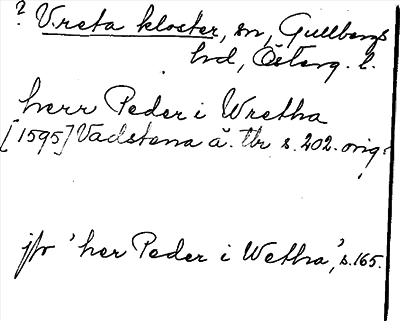 ? Vreta kloster, sn, Gullbergs
hd, Österg. l.
herr Peder i Wretha
[1595] Vadstena ä. Tbr s. 202. orig.
jfr 'her Peder i Wetha', s. 165.